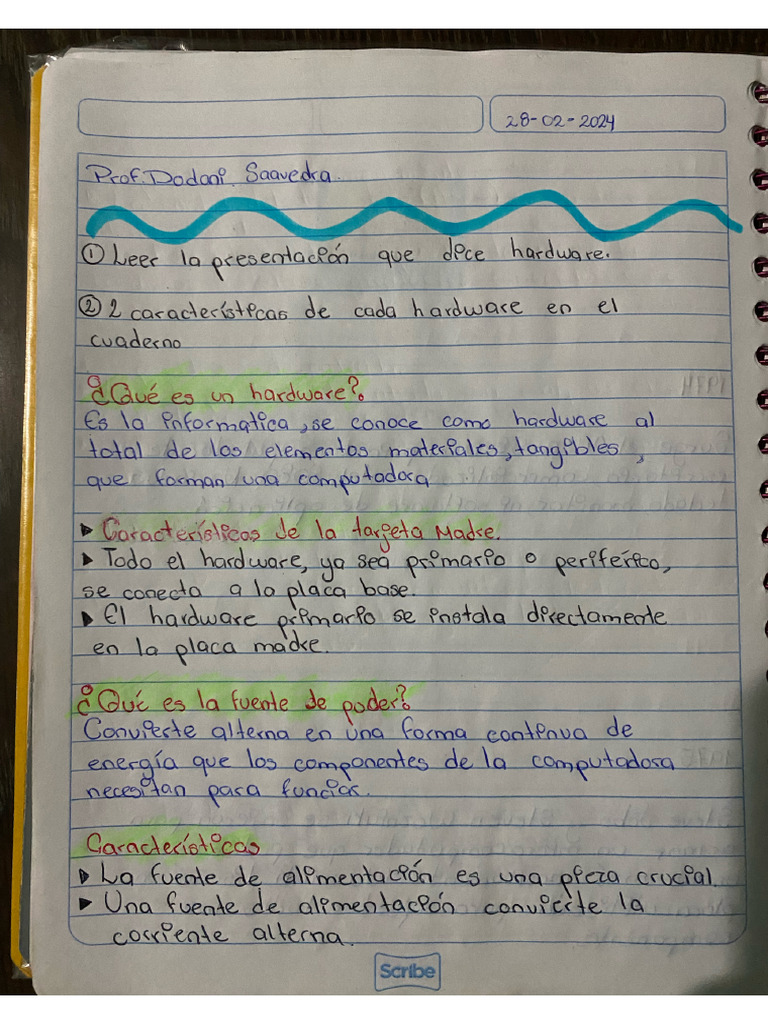 28-02-2024
Prof. Dodani. Saavedra.
① Leer la presentación que dice hardware.
② 2 características de cada hardware en el
cuaderno
¿Qué es un hardware?
Es la informatica, se conoce como hardware al
total de los elementos materiales, tangibles,
que forman una computadora
▸ Características de la tarjeta Madre.
▸ Todo el hardware, ya sea primario o periférico,
se conecta a la placa base.
▸ El hardware primario se instala directamente
en la placa madre.
¿Qué es la fuente de poder?
Convierte alterna en una forma continua de
energía que los componentes de la computadora
necesitan para funciar.
Características
▸ La fuente de alimentación es una pieza crucial.
▸ Una fuente de alimentación convierte la
corriente alterna.
Scribe